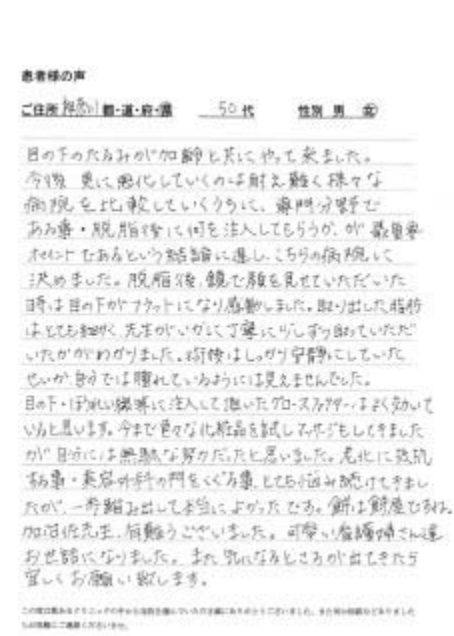 患者様の声
ご住所 神奈川 都・道・府・県 50代 性別 男 女
目の下のたるみが加齢と共にやって来ました。
今後 更に悪化していくのは耐え難く様々な
病院を比較していくうちに、専門分野で
ある事・脱脂後に何を注入してもらうか、が最重要
ポイントであるという結論に達し、こちらの病院に
決めました。脱脂後、鏡で顔を見せていただいた
時は目の下がフラットになり感動しました。取り出した脂肪
はとても細かく、先生がいかに丁寧に少しずつ取っていただ
いたかがわかりました。術後はしっかり安静にしていた
せいか自分では腫れているようには見えませんでした。
目の下・ほうれい線等に注入して頂いたグロースファクターはよく効いて
いると思います。今まで色々な化粧品を試しマッサージもしてきました
が自分には無駄な努力だったと思いました。老化に抵抗
する事・美容外科の門をくぐる事、とても悩み続けてきまし
たが、一歩踏み出して本当によかったです。餅は餅屋ですね。
加治佐先生、有難うございました。可愛い看護婦さん達
お世話になりました。また気になるところが出てきたら
宜しくお願い致します。
この度は数あるクリニックの中から当院を選んでいただき誠にありがとうございました。また何か
ご連絡くださいませ。